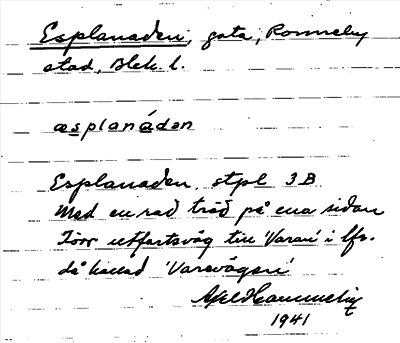 Esplanaden, gata, Ronneby
stad, Blek. l.
æsplanádən
Esplanaden, stpl 3B
Med en rad träd på ena sidan
Förr utfartsväg till 'Varan' i lfs.
då kallad 'Varevägen'
Axel Hammelig
1941